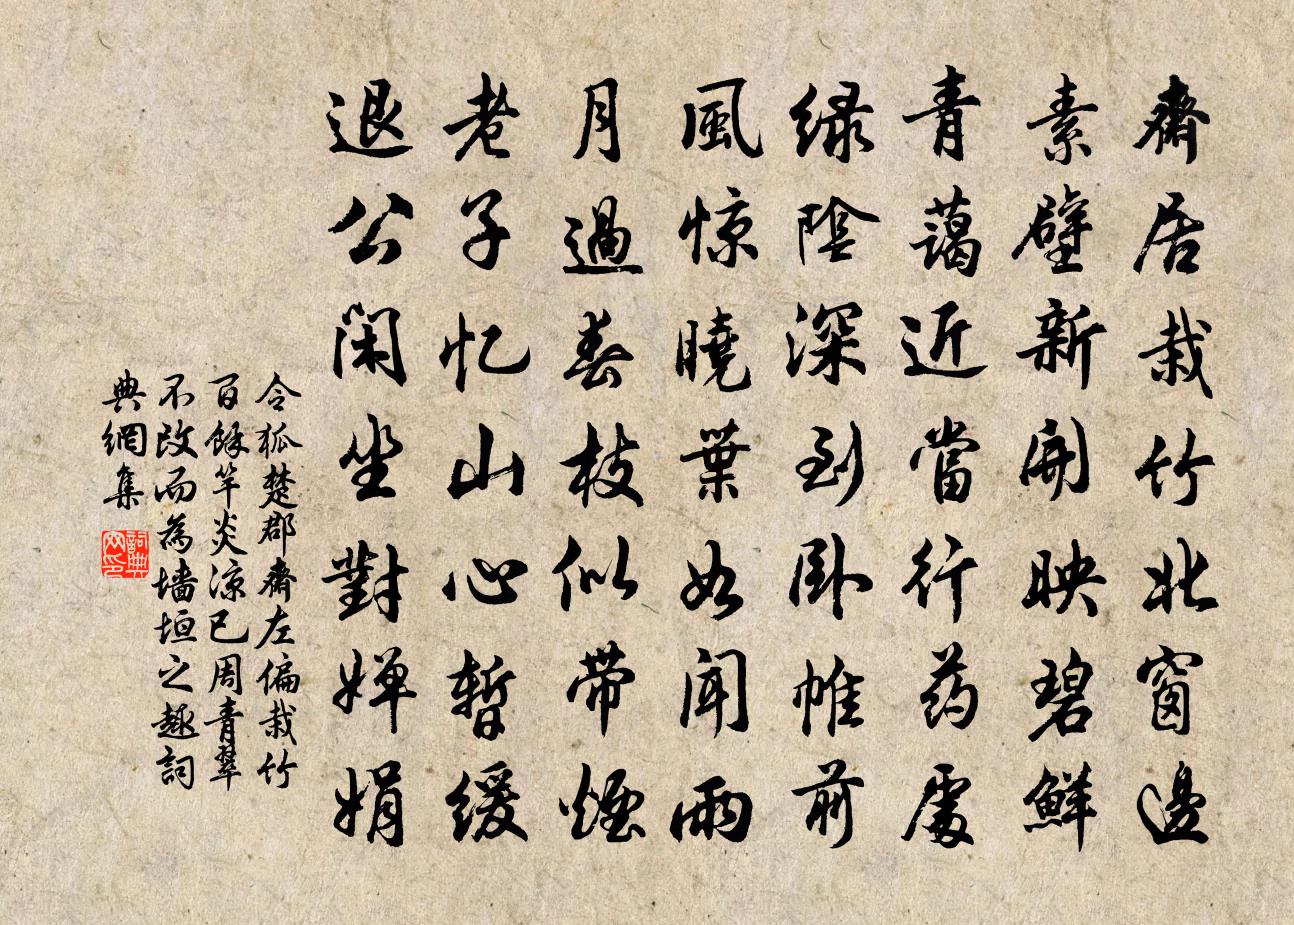 齋居栽竹北窗邊
素壁新開映碧鮮
青藹近當行药處
緑陰深到卧帷前
風惊曉葉如聞雨
月過春枝似帶煙
老子忆山心暫緩
退公閑坐對嬋娟
令狐楚郡齋左偏栽竹
百餘竿炎凉已周青翠
不改而為墙垣之趣詞
典網集
詞典
网印